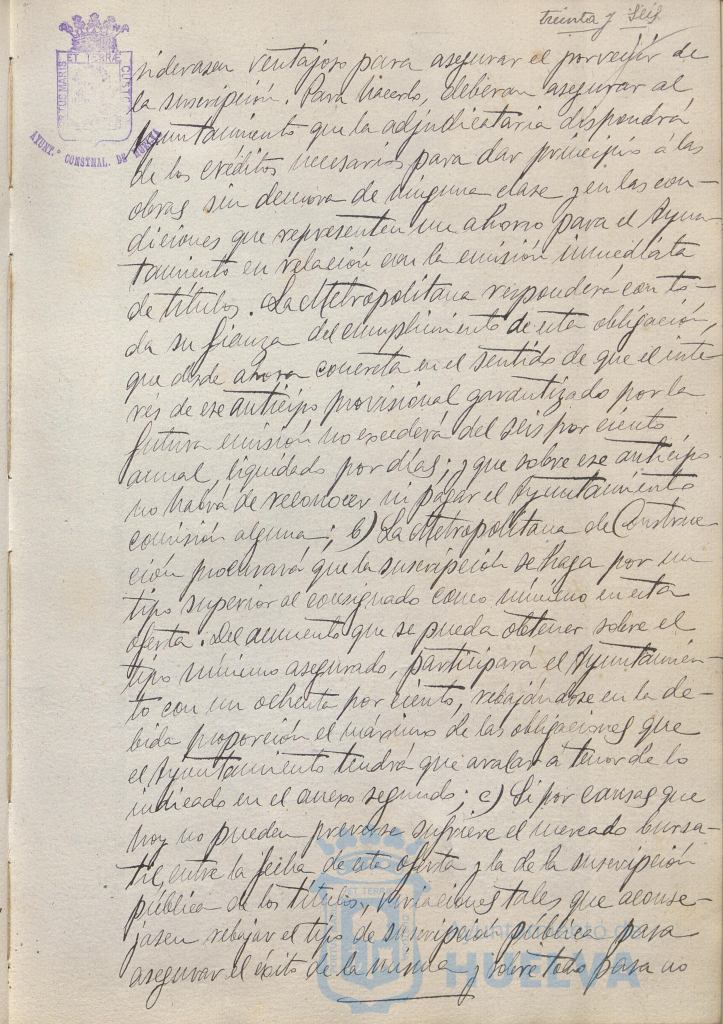 treinta y seis
PORTUS MARIS ET TERRÆ CUSTODIA
AYUNT.º CONSTNAL. DE HUELVA
siderasen ventajoso para asegurar el porvenir de
la suscripción. Para hacerlo, deberán asegurar al
Ayuntamiento que la adjudicataria dispondrá
de los créditos necesarios para dar principio á las
obras sin demora de ninguna clase y en las con-
diciones que representen un ahorro para el Ayun-
tamiento en relación con la emisión inmediata
de títulos. La Metropolitana responderá con to-
da su fianza del cumplimiento de esta obligación,
que desde ahora concreta en el sentido de que el inte-
rés de ese anticipo provisional garantizado por la
futura emisión no excederá del seis por ciento
anual, liquidado por días; y que sobre ese anticipo
no habrá de reconocer ni pagar el Ayuntamiento
comisión alguna; b) La Metropolitana de Construc-
ción procurará que la suscripción se haga por un
tipo superior al consignado como mínimo en esta
oferta. Del aumento que se pueda obtener sobre el
tipo mínimo asegurado, participará el Ayuntamien-
to con un ochenta por ciento, rebajándose en la de-
bida proporción el máximo de las obligaciones que
el Ayuntamiento tendrá que avalar á tenor de lo
indicado en el anexo segundo; c) Si por causas que
hoy no pueden preverse sufriere el mercado bursa-
til entre la fecha de esta oferta y la de la suscripción
pública de los títulos, variaciones tales que aconse-
jasen rebajar el tipo de suscripción pública para
asegurar el éxito de la misma y sobre todo para no
Ayuntamiento de
HUELVA